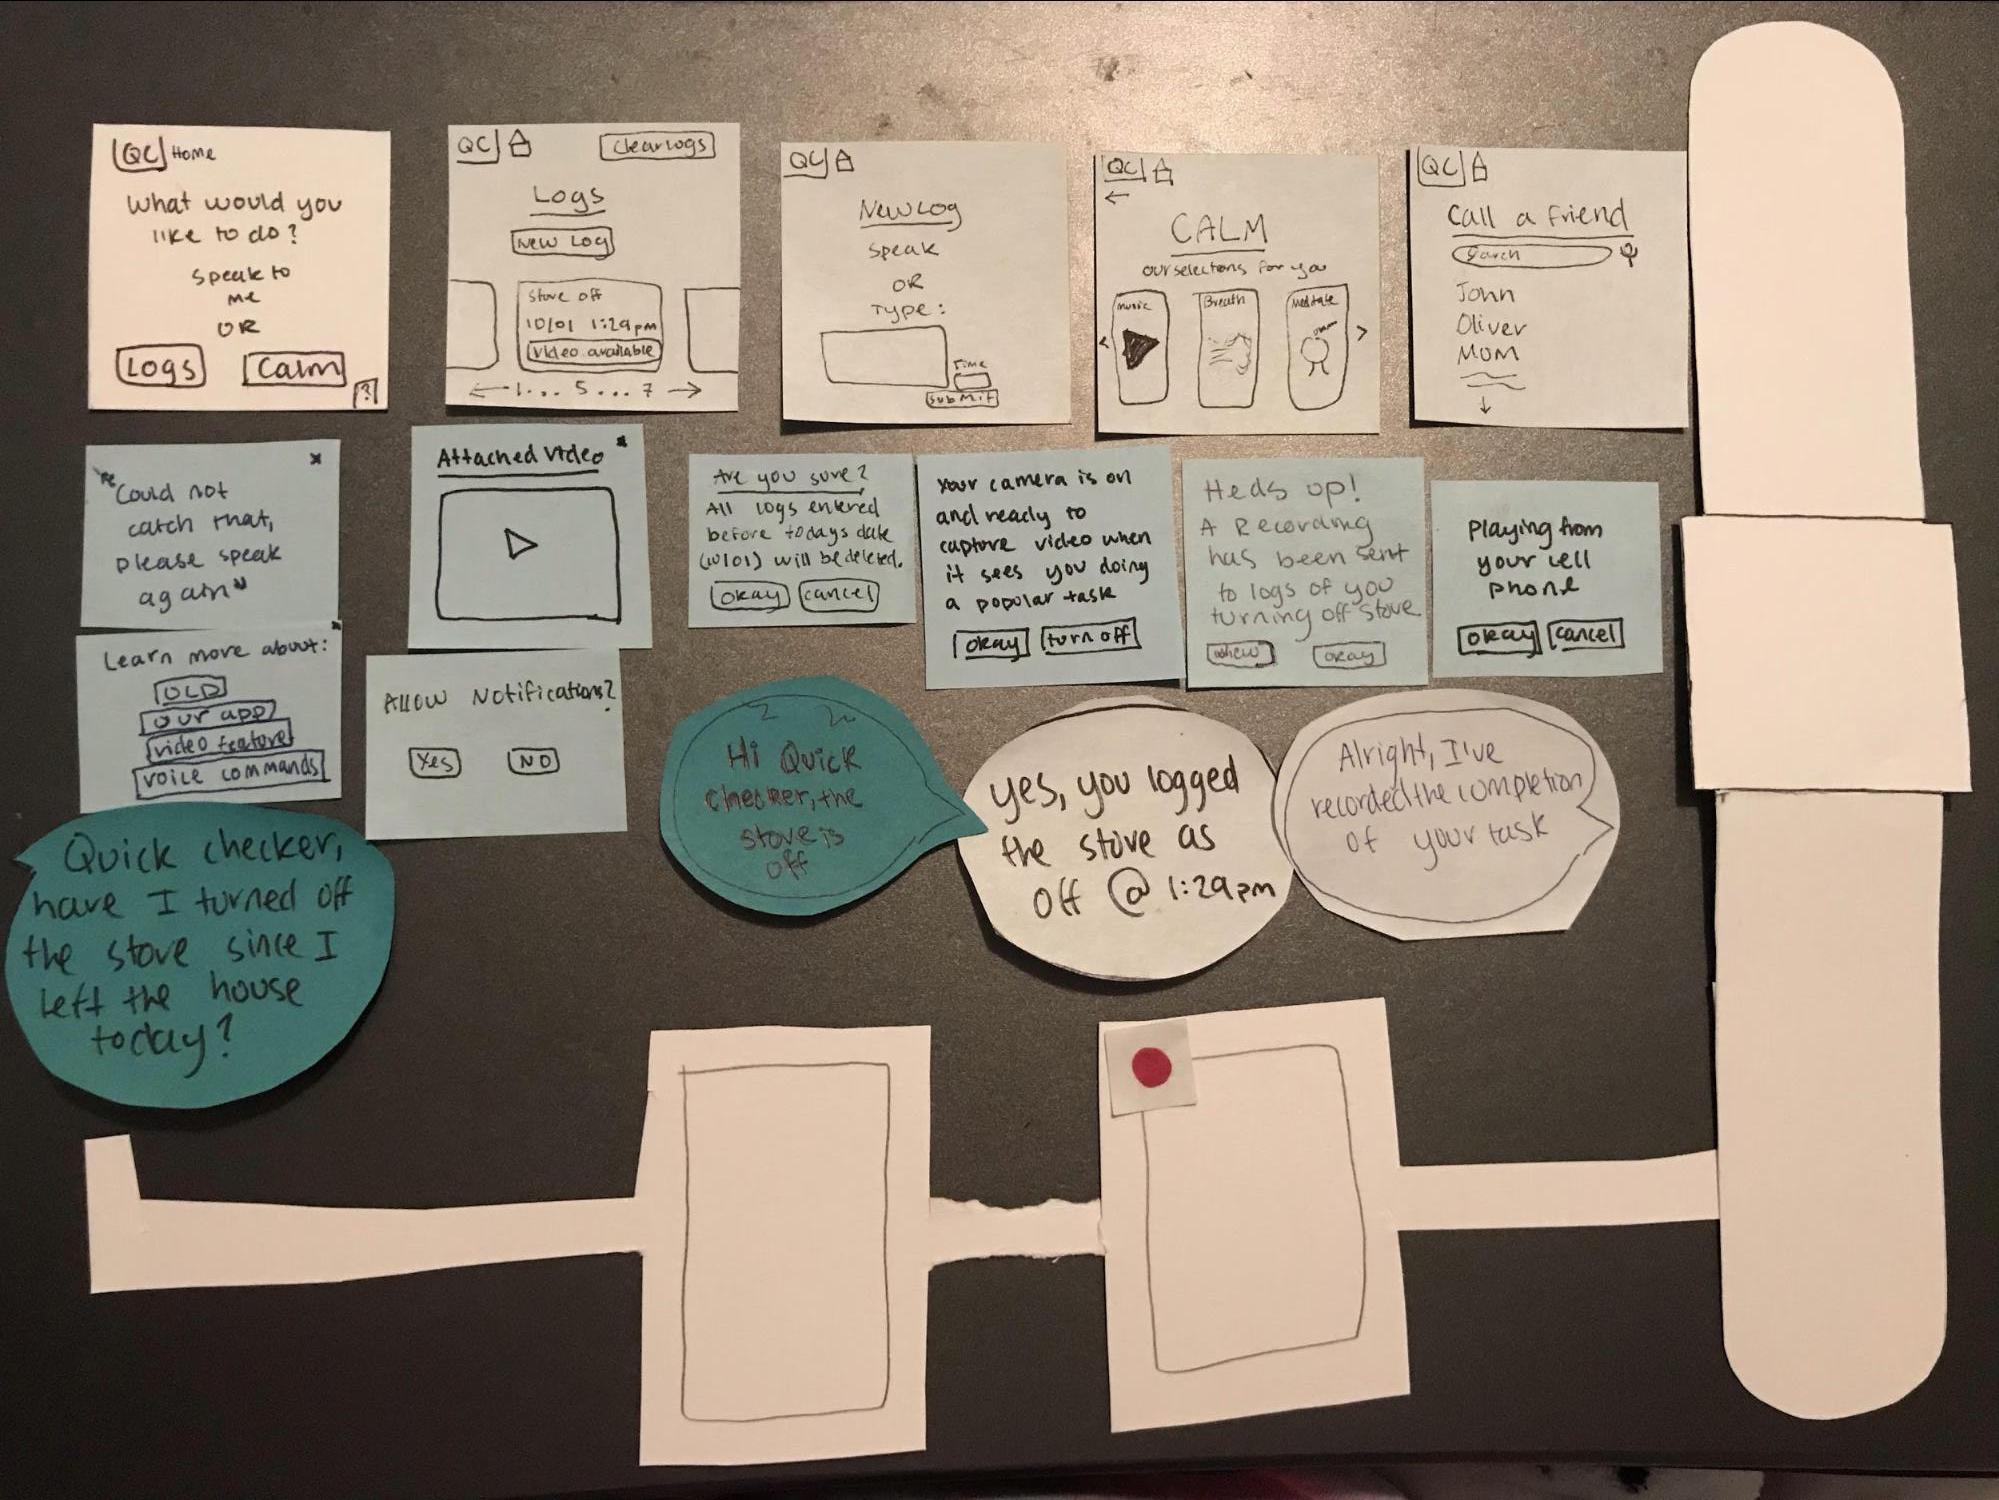 QC Home
What would you
like to do?
Speak to
me
OR
Logs Calm
?
QC Clear logs
Logs
New Log
Stove off
10/01 1:29pm
Video available
← 1... 5 ... 7 →
QC
New Log
Speak
OR
Type:
Time
submit
QC
←
CALM
our selections for you
Music Breath Meditate
< >
QC
Call a Friend
Search
John
Oliver
Mom
↓
x
"Could not
catch that,
please speak
again"
Attached Video x
Are you sure?
All logs entered
before todays date
(10/01) will be deleted.
okay cancel
Your camera is on
and ready to
capture video when
it sees you doing
a popular task
okay turn off
Heds up!
A Recording
has been sent
to logs of you
turning off stove
view okay
Playing from
your cell
phone
okay cancel
x
Learn more about:
OCD
our app
video feature
voice commands
Allow Notifications?
Yes NO
Hi Quick
Checker, the
stove is
off
yes, you logged
the stove as
off @ 1:29pm
Alright, I've
recorded the completion
of your task
Quick checker,
have I turned off
the stove since I
left the house
today?